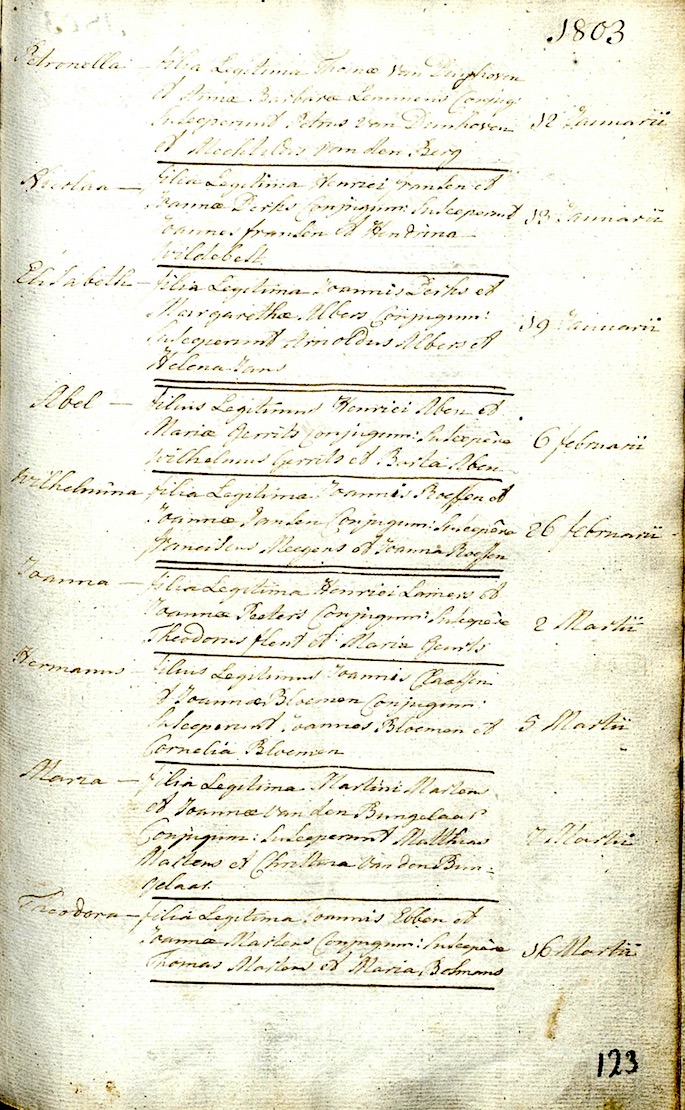 1803
Petronella – filia Legitima Thomæ Van
et Annæ Barbaræ Lemmens Conjug:
Susceperunt Petrus van Dinhoven 12 Januarii
et Mechtildis van den Berg
Nicolaa — filia Legitima Henrici Fransen et
Joannæ Derks Conjugum: Susceperunt 13 Januarii
Joannes fransen et Hendrina
Wildebelt.
Elisabeth – filia Legitima Joannis Derks et
Margarethæ Albers Conjugum:
Susceperunt Arnoldus Albers et 19 Januarii
Helena Jans
Abel — filius Legitimus Henrici Aben et
Mariæ Gerrits Conjugum: Suscepêre 6 februarii
Wilhelmus Gerrits et Aben
Wilhelmina filia Legitima Joannis Roessen et
Joannæ Jansen Conjugum: Suscepêre 26 februarii
franciscus Meegens et Joanna Roessen
Joanna – filia Legitima Henrici Lamers et
Joannæ Peeters Conjugum: Suscepêre 2 Martii
Theodorus flent et: Maria Geurts
Hermanus – filius Legitimus Joannis Claassen
et Joannæ Bloemen Conjugum:
Susceperunt Joannes Bloemen et 5 Martii
Cornelia Bloemen
Maria – filia Legitima Martini Martens
et Joannæ Van den Bungelaar
Conjugum: Susceperunt Matthias 7 Martii
Martens et Christina Van den Bun-
gelaar.
Theodora – filia Legitima Joannis Ebben et
Joannæ Martens Conjugum: Suscepêre 16 Martii
Thomas Martens et Maria Bosmans
123